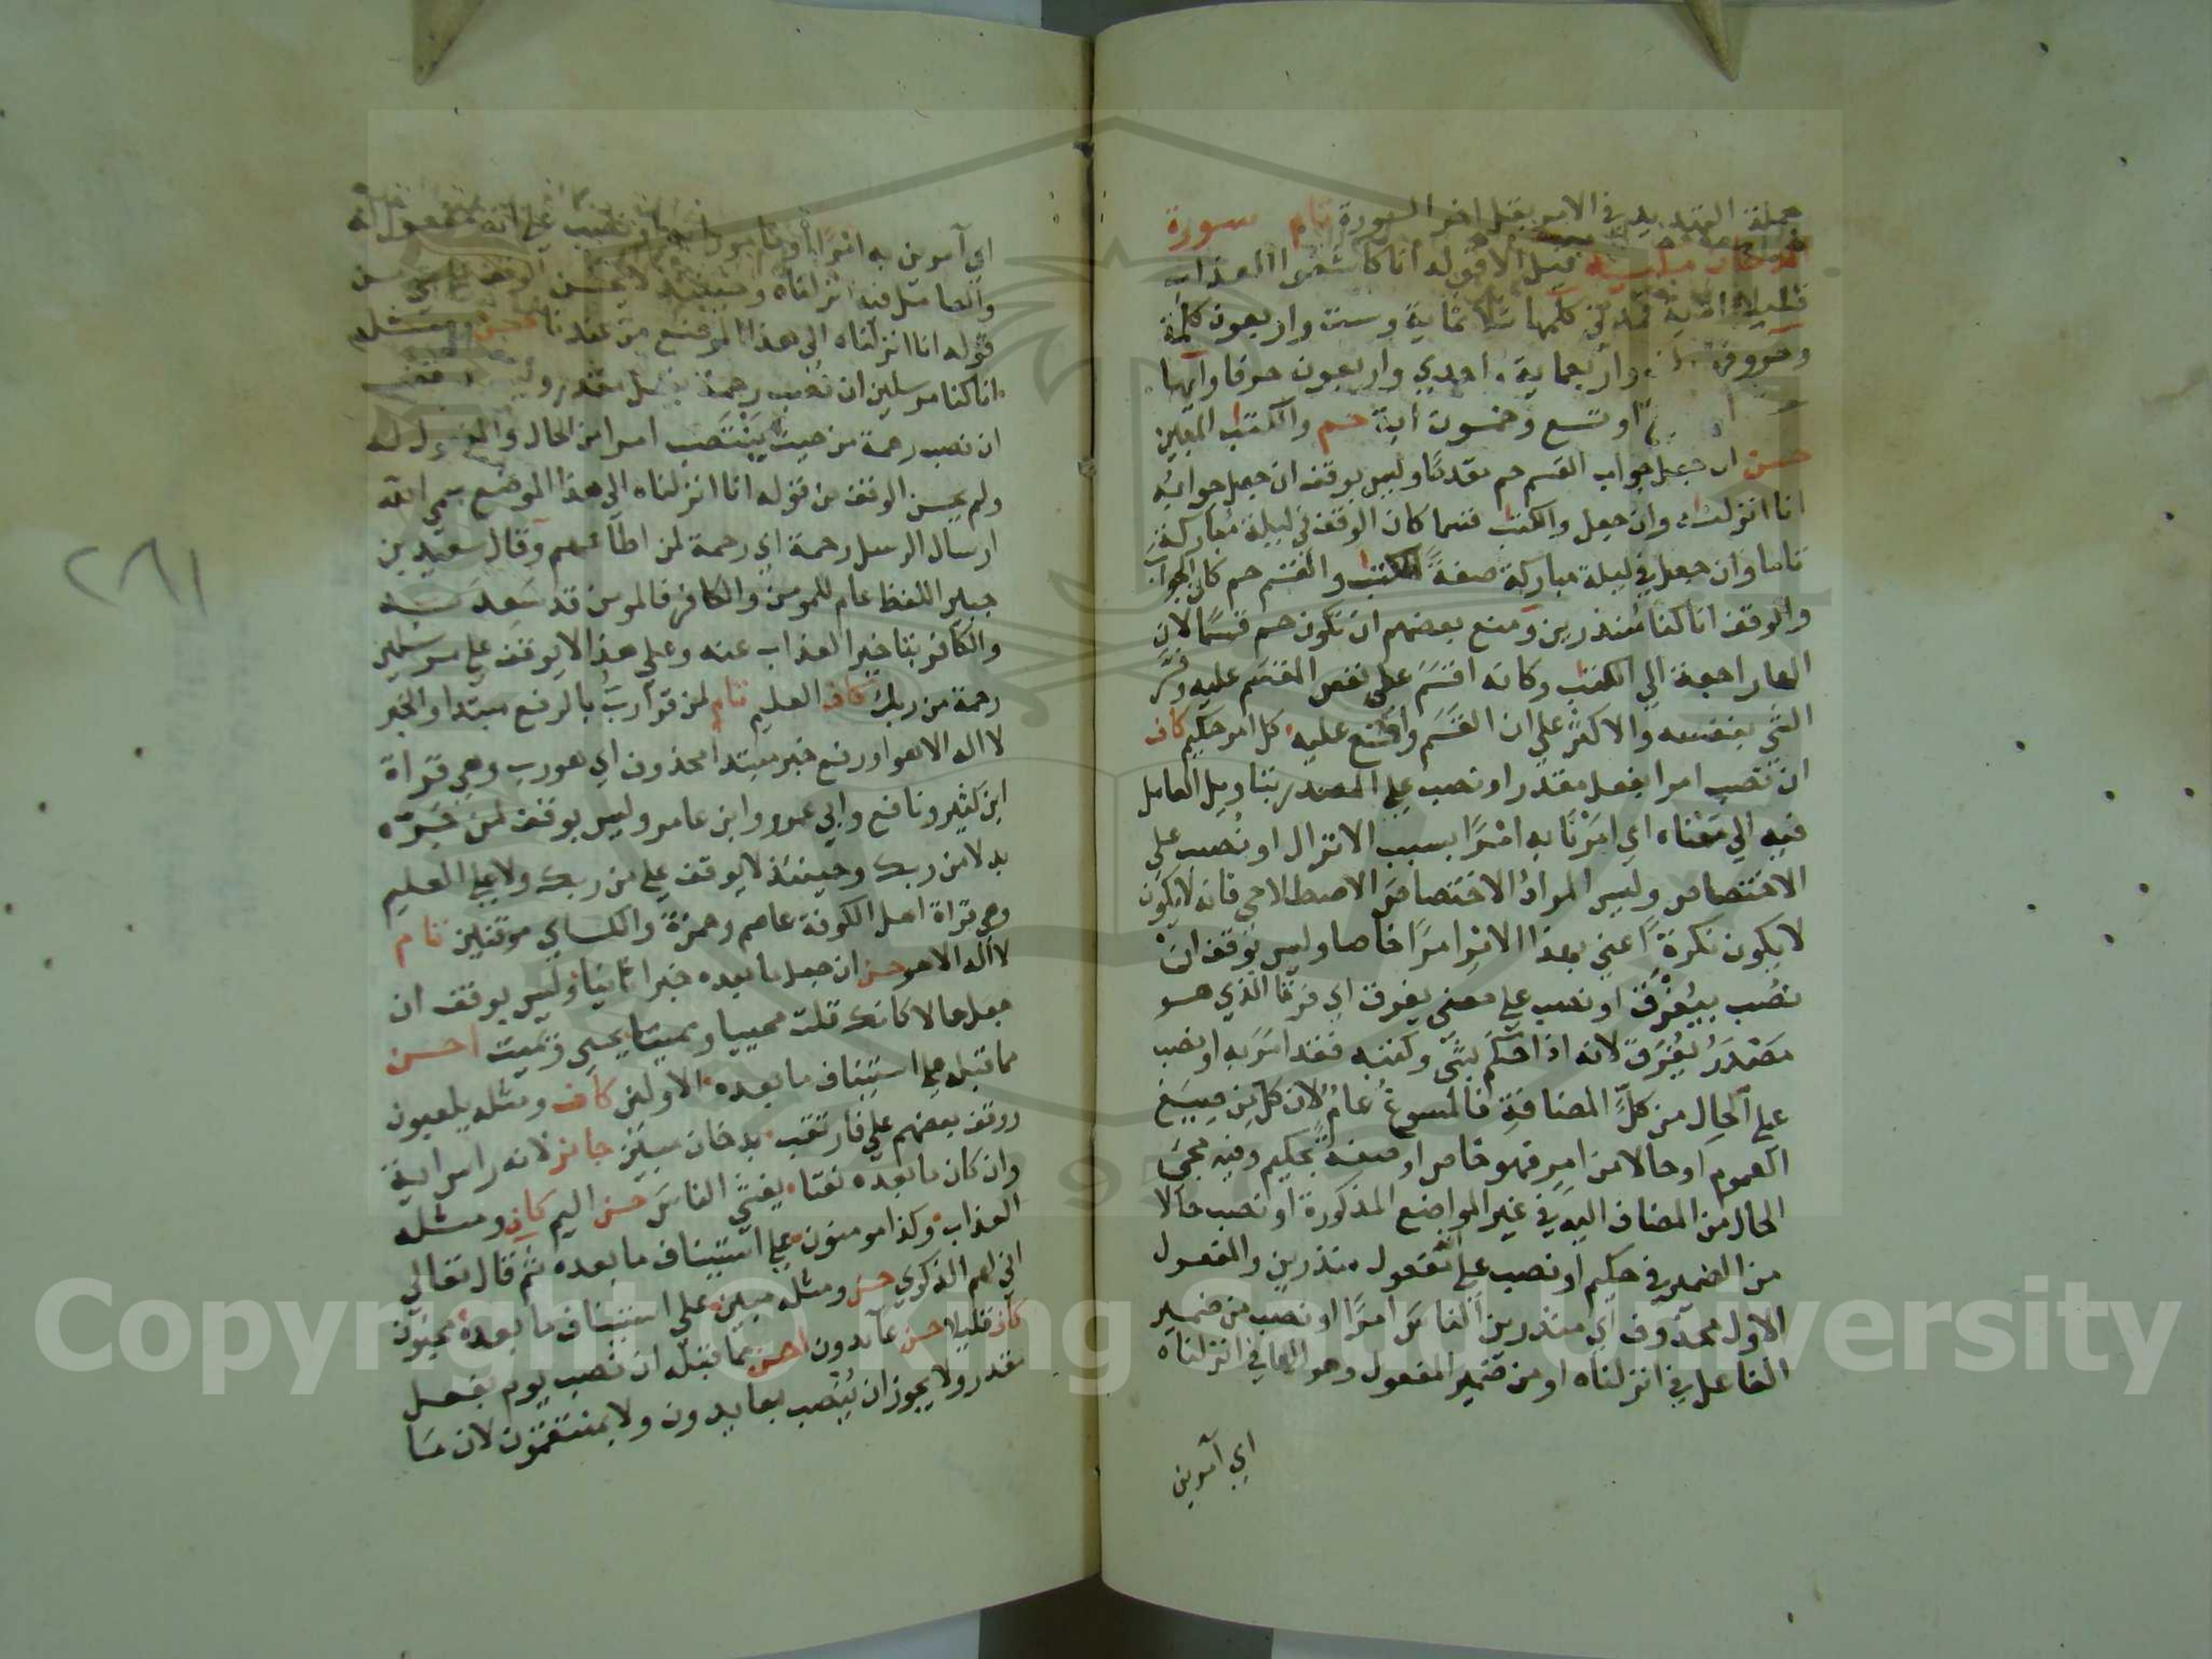 جملة التهديد في الامر بقبل اخر السورة تام سورة
الدخان مكية قيل الا قوله انا كاشفوا العذاب
قليلا الآية كلمها ثلاثماية وست واربعون كلمة
وحروفها واربعماية واحدي واربعون حرفا وآيها
او تسع وخمسون اية حم والكتب المبين
حسن ان جعل جواب القسم حم مقدمًا وليس بوقف ان جعل جوابه
انا انزلناه وان جعل والكتب قسما كان الوقف في ليلة مباركة
تاما وان جعل في ليلة مباركة صفةً للكتب والقسم حم كان الجواب
والوقف انا كنا منذرين ومنع بعضهم ان تكون حم قسمًا لان
الها راجعة الي الكتب وكانه اقسَمَ علي نفس المقسَم عليه وفسّر
الشي بنفسه والاكثر علي ان القسَم واقع عليه كل امر حكيم كاف
ان نصب امرا بفعل مقدر او نصب علي المصدر بتاويل العامل
فيه الي معناه اي امَرْنا به امْرًا بسبب الانزال او نُصب علي
الاختصاص وليس المرادُ الاختصاصَ الاصطلاحي فانه لا يكون
لا يكون نكرةً اعني بهذا الامر امرًا خاصا وليس بوقف انْ
نصُب بيُفْرَق او نصب علي معني يفرق اي فرقًا الذي هو
مَصْدَرُ يُفْرَق لانه اذا حَكَم بشي وكتبه فقد امَرَ به او نصب
علي الحالِ من كلّ المضافةِ فالمسوغُ عامٌ لان كل من صِيَغ
العموم او حالا من امرٍ فهو خاص او صفة بحكيم وفيه مجئ
الحال من المضاف اليه في غير المواضع المذكورة او نصب حالا
من الضمير في حكيم او نصب علي انه مفعول منذرين والمفعول
الاول محذوف اي منذرين الناسَ امرًا او نصب من ضمير
الفاعل في انزلناه او من ضمير المفعول وهو الها في انزلناه
اي آمرين
اي آمرين به امرًا او مامورا به او نصب علي انه مفعول له
والعامل فيه انزلناه وحينئذ لا يحسن الوقف علي شي من
قوله انا انزلناه الي هذا الموضع من عندنا حسن ومثله
انا كنا مرسلين ان نُصب رحمة بفعل مقدر وليس بوقف
ان نصب رحمة من حيث يَنْتَصب امرا من الحال والمفعول له
ولم يحسن الوقف من قوله انا انزلناه الي هذا الموضع سمي الله
ارسال الرسل رحمة اي رحمة لمن اطاعهم وقال سعيد بن
جبير اللفظ عام للمومن والكافر فالمومن قد سَعِد به
والكافر بتاخير العذاب عنه وعلي هذا لا يوقف علي مرسلين
رحمة من ربك كاف العليم تام لمن قرا ربُ بالرفع مبتدا والخبر
لا اله الا هو او رفع خبر مبتدا محذوف اي هو رب وهي قراة
ابن كثير ونافع وابي عمرو وابن عامر وليس بوقف لمن جَرّه
بدلا من ربك وحينئذ لا يوقف علي من ربك ولا علي العليم
وهي قراة اهل الكوفة عاصم وحمزة والكساي موقنين تام
لا اله الا هو حسن ان جعل ما بعده خبرا ثانيا وليس بوقف ان
جعل حالا كانك قلت محييا ومميتا يحيي ويميت احسن
مما قبله علي استيناف ما بعده الاولين كاف ومثله يلعبون
ووقف بعضهم علي فارتقب بدخان مبين جائز لانه راس اية
وان كان ما بعده نعتا يغشي الناسَ حسن اليم كاف ومثله
العذاب وكذا مومنون علي استيناف ما بعده ثم قال تعالي
اني لهم الذكري حسن ومثله مبين علي استيناف ما بعده مجنون
كاف قليلا حسن عائدون احسن مما قبله ان نصب يوم بفعل
مقدر ولا يجوز ان يُنصب بعايدون ولا بمنتقمون لان مَا